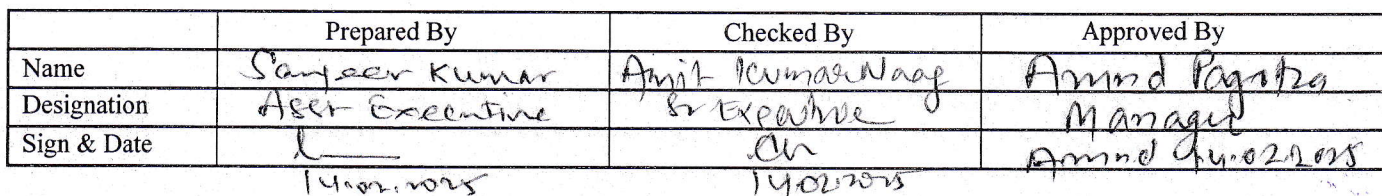 Prepared By Checked By Approved By
Name Sanjeev Kumar Amit Kumar Naag Arvind
Designation Asst Executive Sr Executive Manager
Sign & Date Arvind 14.02.2025
14.02.2025 14.02.2025